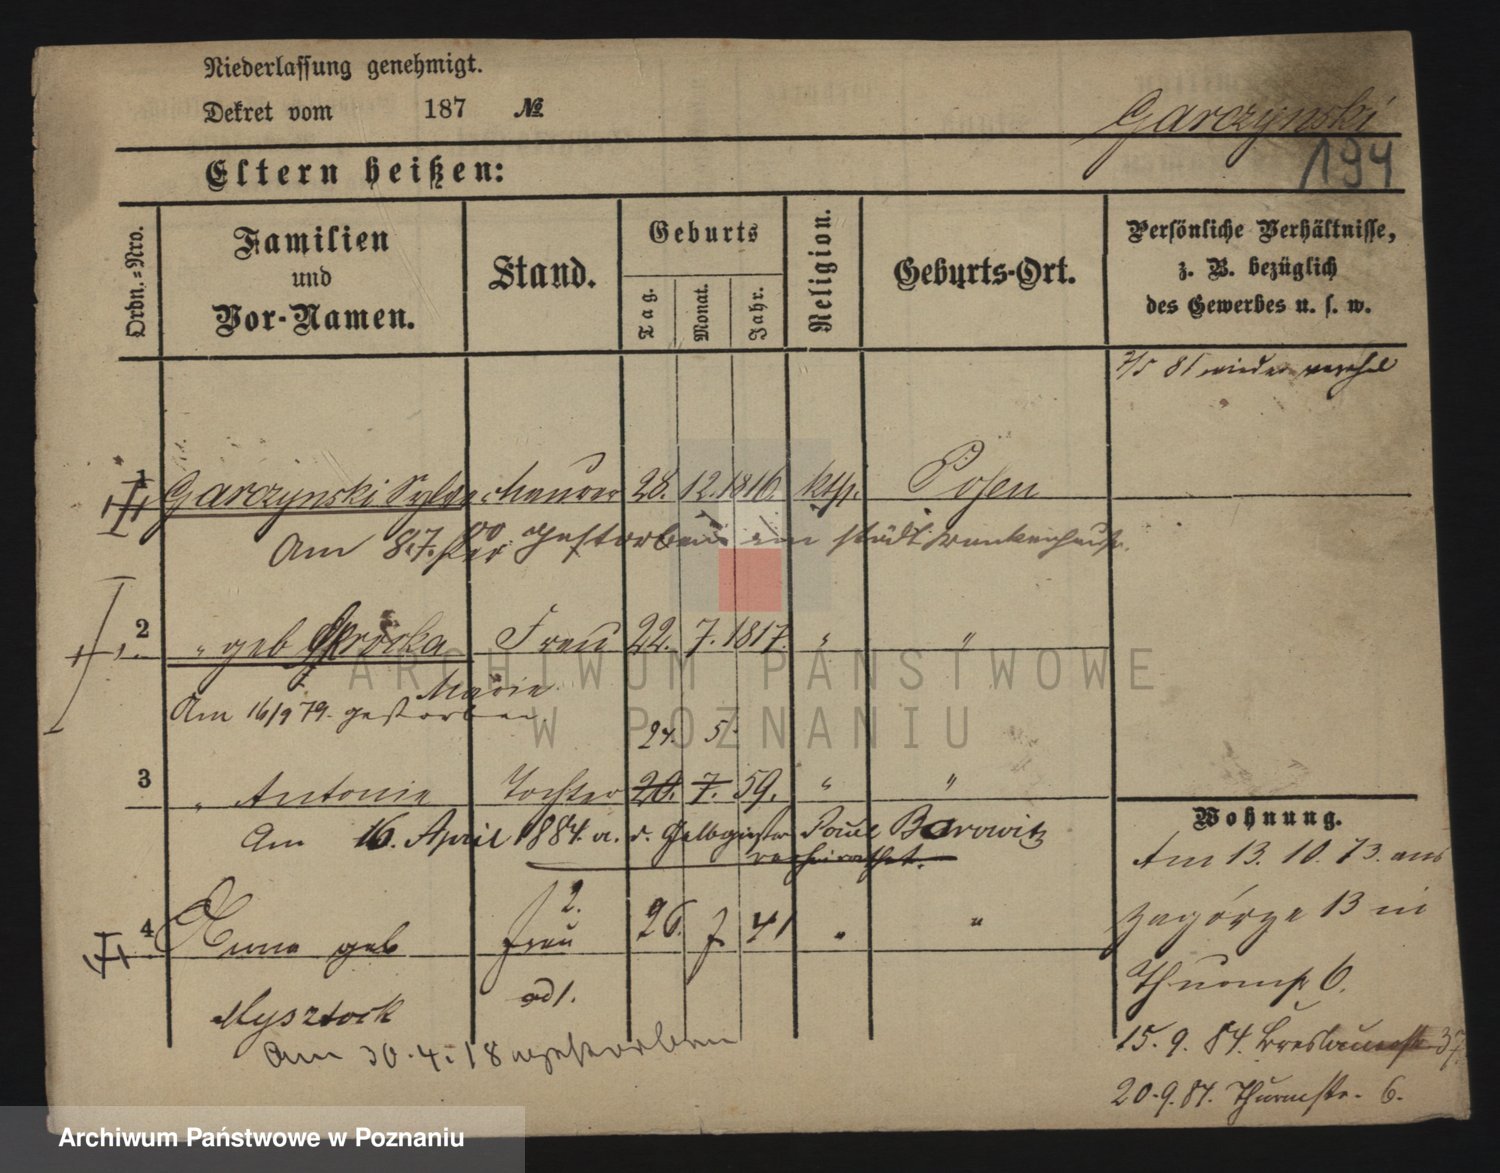 Niederlassung genehmigt.
Dekret vom 187 №
Garczynski
194
Eltern heißen:
Ordn.=Nro.
Familien
und
Vor-Namen.
Stand.
Geburts
Tag.
Monat.
Jahr.
Religion.
Geburts-Ort.
Persönliche Verhältnisse,
z. B. bezüglich
des Gewerbes u. s. w.
81 wieder
1 Garczynski Maurer 28. 12. 1816 kth. Posen
Am 8.7. gestorben im städt Krankenhause.
2 " geb Frau 22. 7. 1817. " "
Marie
Am 16/9 79. gestorben.
24. 5.
3 " Antonie Tochter 20. 7. 59. " "
Am 16. April 1884. a. d. Gelbgießer Paul Borowitz
verheirathet.
4 Anna geb 2. Frau 26. 7 41 " "
Mysztock
ad 1.
Am 30.4.18 gestorben
Wohnung.
Am 13. 10. 73. aus
Zagórze 13 in
Thurmstr 6.
15. 9. 84. Breslauerstr 37
20.9.84. Thurmstr. 6.
ARCHIWUM PAŃSTWOWE
W POZNANIU
Archiwum Państwowe w Poznaniu